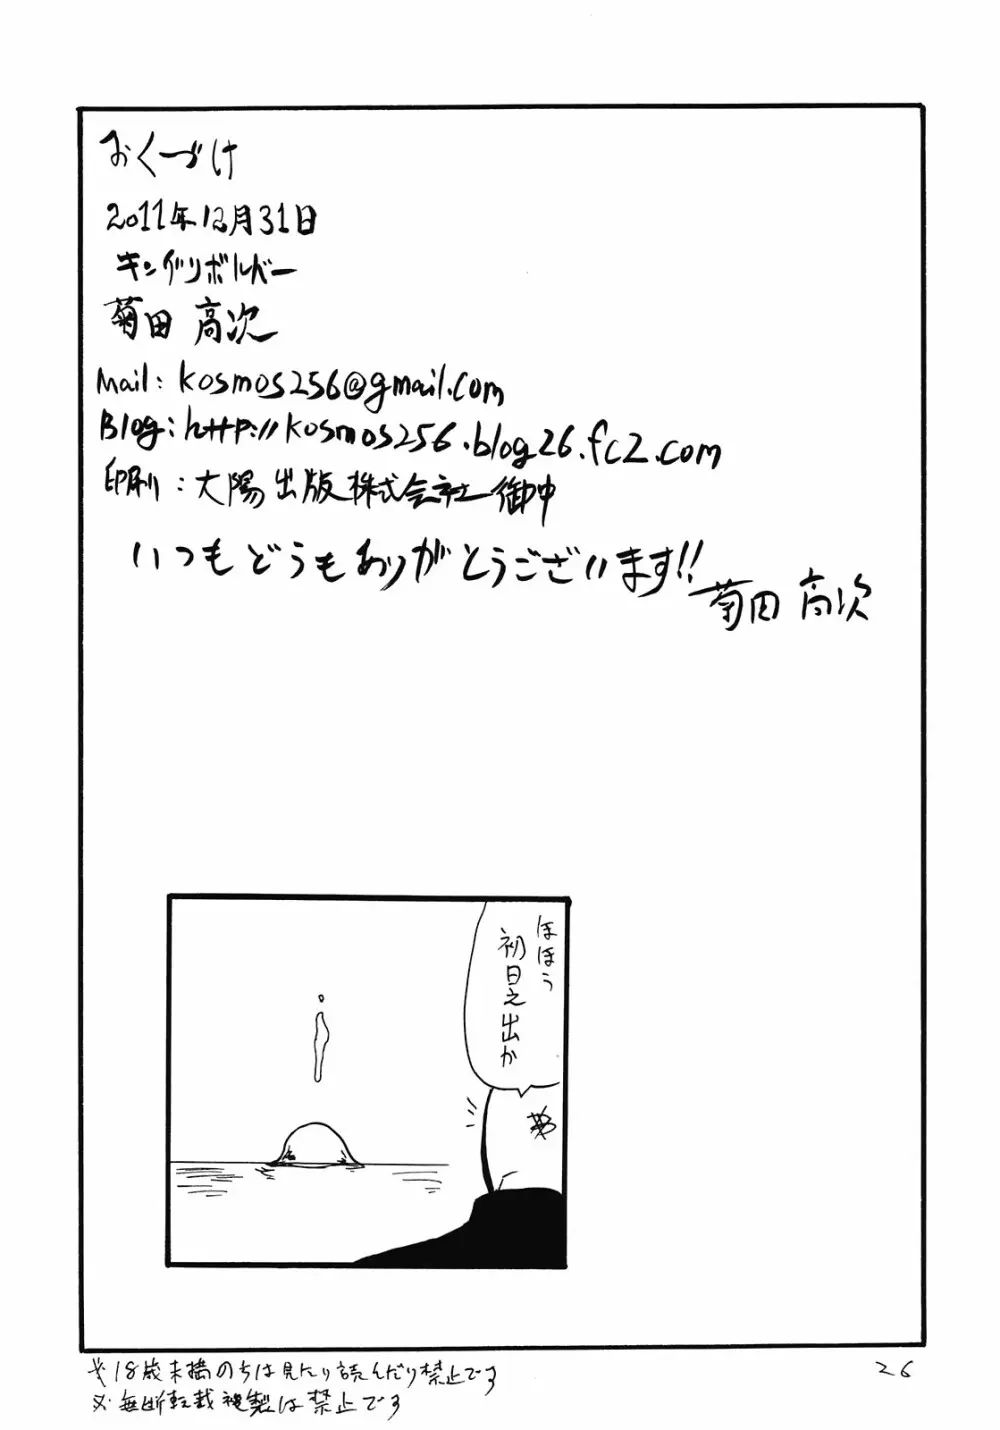 おくづけ
2011年12月31日
キングリボルバー
菊田 高次
Mail: kosmos256@gmail.com
Blog: http://kosmos256.blog26.fc2.com
印刷：大陽出版株式会社 御中
いつもどうもありがとうございます!!
菊田 高次
ほほう
初日之出か
※18歳未満のちは見たり読んだり禁止です
※無断転載複製は禁止です
26